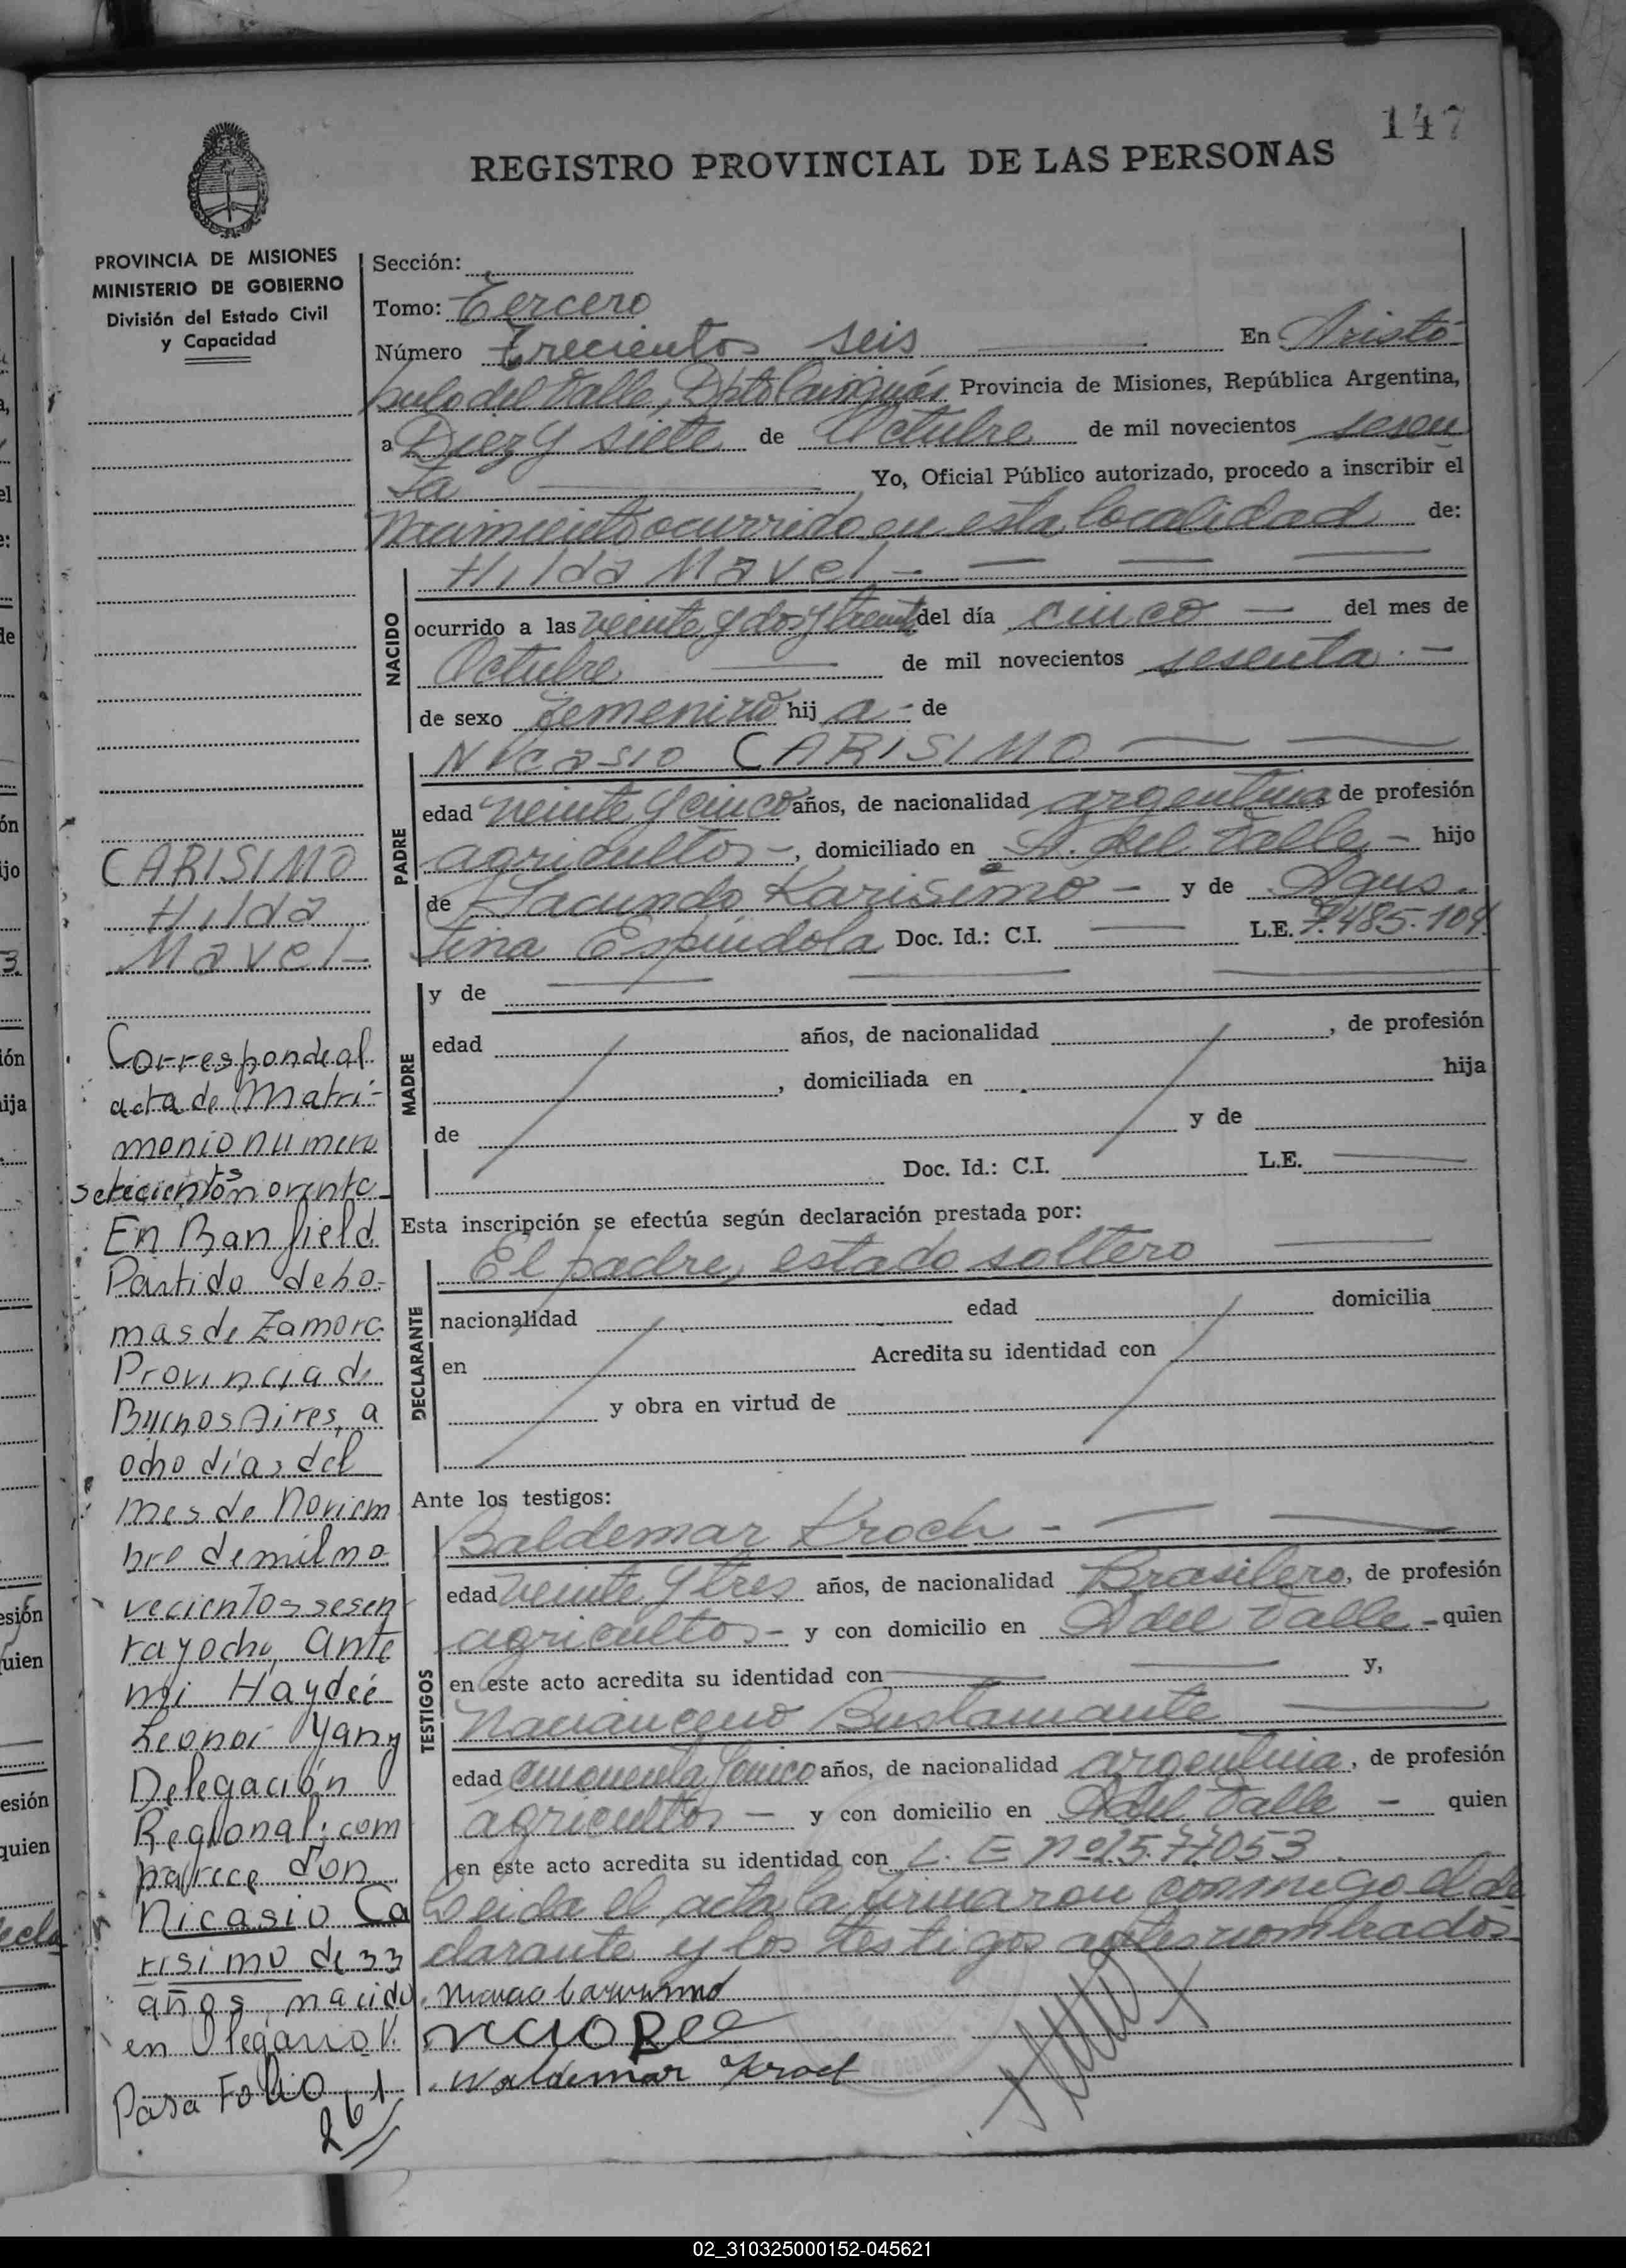 147
REGISTRO PROVINCIAL DE LAS PERSONAS
PROVINCIA DE MISIONES
MINISTERIO DE GOBIERNO
División del Estado Civil
y Capacidad
CARISIMO
Hilda
Mavel -
Corresponde al
acta de Matri-
monio numero
setecientos noventa
En Banfield
Partido de Lo-
mas de Zamora
Provincia de
Buenos Aires, a
ocho días del
mes de Noviem
bre de mil no
vecientos sesen
ta y ocho, ante
mi Haydée
Leonor Yany
Delegación
Regional; com
parece don
Nicasio Ca
risimo de 33
años, nacido
en Olegario V.
Pasa Folio
261
Sección:
Tomo: Tercero
Número Trecientos seis En Aristó-
bulo del Valle, Dpto Cainguás Provincia de Misiones, República Argentina,
a Diez y siete de Octubre de mil novecientos sesen
ta Yo, Oficial Público autorizado, procedo a inscribir el
nacimiento ocurrido en esta localidad de:
NACIDO
Hilda Mavel -
ocurrido a las veinte y dos y treint del día cinco — del mes de
Octubre de mil novecientos sesenta . -
de sexo femenino hij a - de
PADRE
Nicasio CARISIMO
edad veinte y cinco años, de nacionalidad argentina de profesión
agricultor -, domiciliado en A. del Valle - hijo
de Facundo Karisimo - y de Agus-
tina Espindola Doc. Id.: C.I. — L.E. 7.485.104
MADRE
y de
edad años, de nacionalidad , de profesión
, domiciliada en hija
de y de
Doc. Id.: C.I. L.E.
Esta inscripción se efectúa según declaración prestada por:
DECLARANTE
El padre, estado soltero
nacionalidad edad domicilia
en Acredita su identidad con
y obra en virtud de
Ante los testigos:
TESTIGOS
Baldemar Kroch -
edad veinte y tres años, de nacionalidad Brasilero, de profesión
agricultor - y con domicilio en A del Valle - quien
en este acto acredita su identidad con y,
Bustamante
edad cincuenta y cinco años, de nacionalidad argentina, de profesión
agricultor — y con domicilio en A del Valle - quien
en este acto acredita su identidad con L. E nº 15.77053
Leida el acta la firmaron conmigo el de
clarante y los testigos antes nombrados
Waldemar
02_310325000152-045621